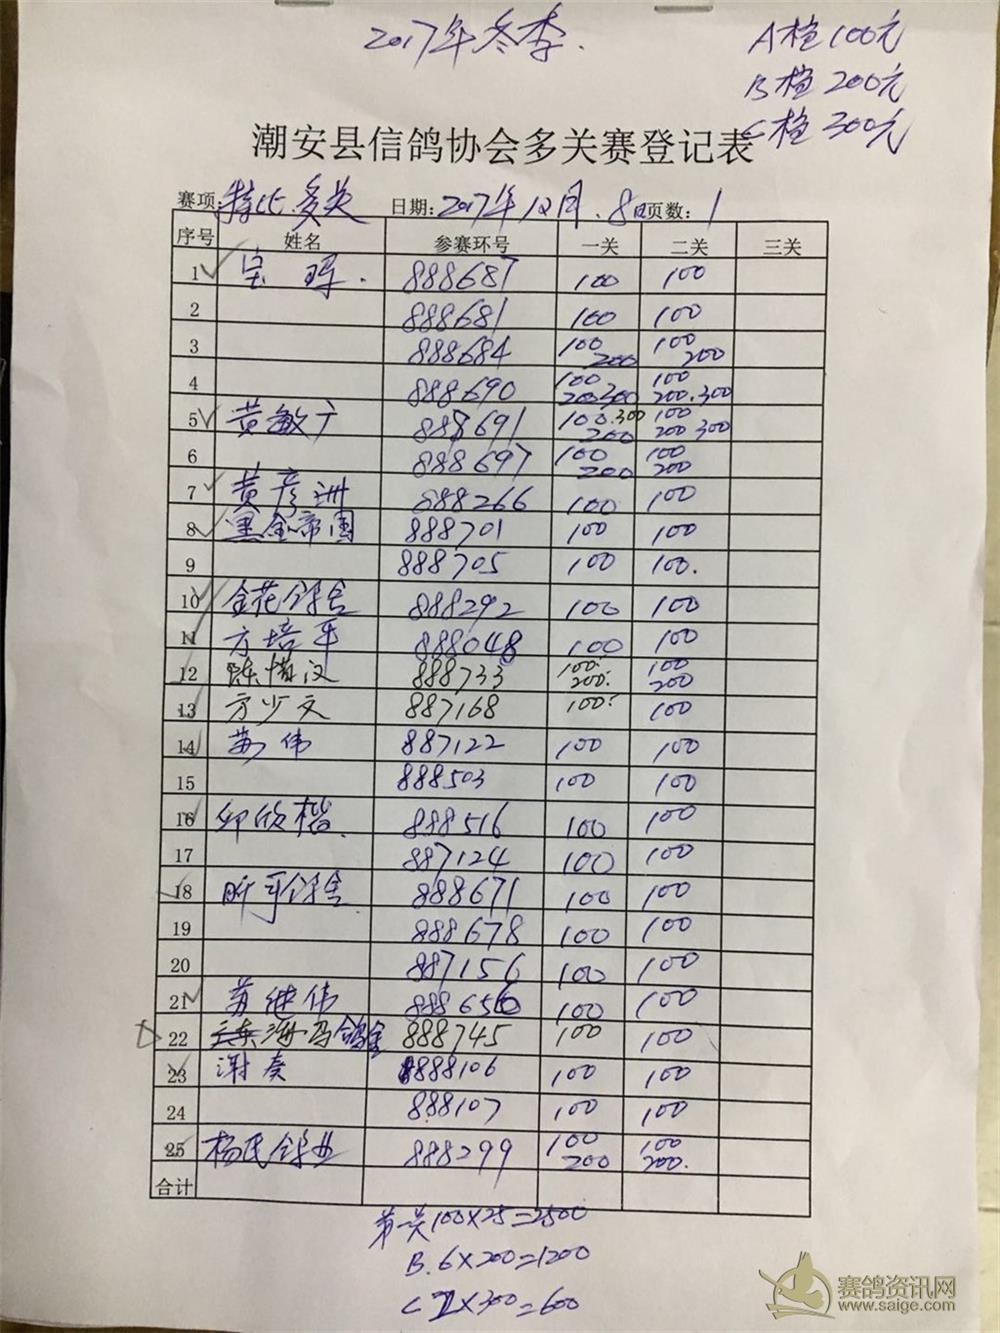 2017年冬季.
A档100元
B档200元
C档300元
潮安县信鸽协会多关赛登记表
赛项:特比.多关 日期:2017年12月.8日 页数:1
序号 姓名 参赛环号 一关 二关 三关
1 宝 888687 100 100
2 888681 100 100
3 888684 100 200 100 200
4 888690 100 200 300 100 200.300
5 黄敏广 888691 100.300 200 100 200 300
6 888697 100 200 100 200
7 黄彦洲 888266 100 100
8 黑金帝国 888701 100 100
9 888705 100 100.
10 金花鸽舍 888292 100 100
11 方培平 888048 100 100
12 陈惜汉 888733 100. 200. 100 200
13 方少文 887168 100. 100
14 苏伟 887122 100 100
15 888503 100 100
16 欣楷. 888516 100 100
17 887124 100 100
18 昕平鸽舍 888671 100 100
19 888678 100 100
20 887156 100 100
21 苏继伟 888656 100 100
22 海冯鸽舍 888745 100 100
23 谢奏 888106 100 100
24 888107 100 100
25 杨氏鸽业 888299 100 200 100 200.
合计
第一关100X25=2500
B.6X200=1200
C 2X300=600
赛鸽资讯网
www.saige.com